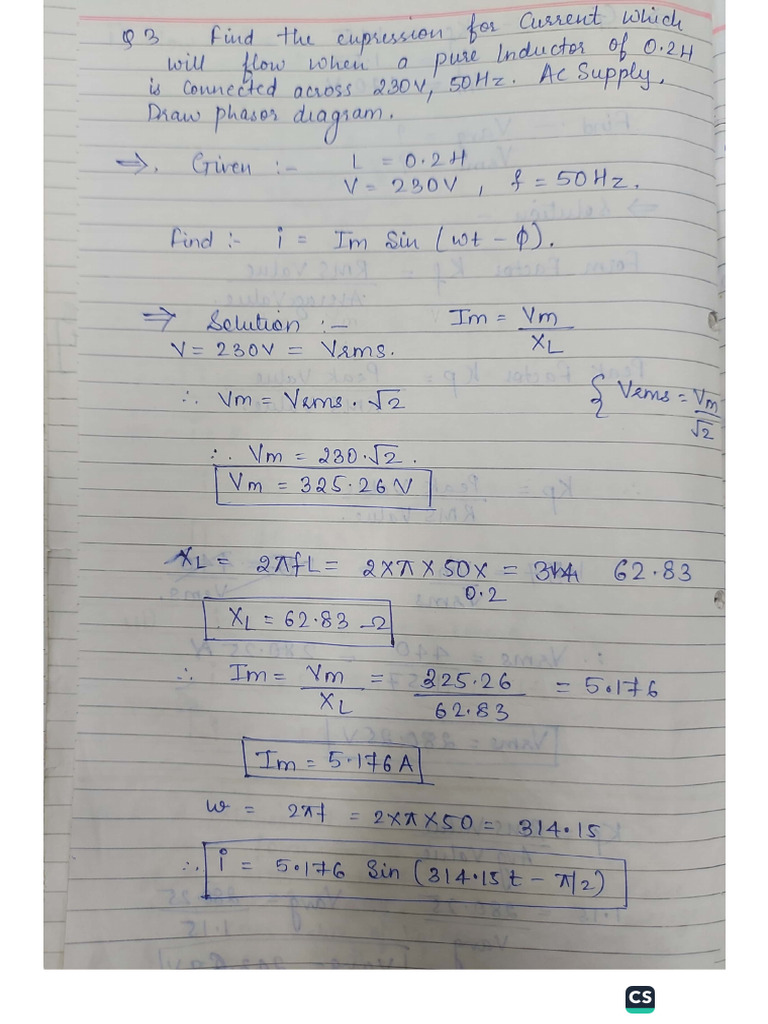 Q 3 Find the expression for Current which
will flow when a pure Inductor of 0.2H
is connected across 230V, 50Hz. Ac Supply.
Draw phasor diagram.
⇒. Given :- L = 0.2H
V = 230V, f = 50Hz.
Find :- i = Im Sin (wt - ϕ).
⇒ Solution :- Im = Vm / XL
V = 230V = Vrms.
∴ Vm = Vrms · √2 { Vrms = Vm / √2
∴ Vm = 230·√2.
Vm = 325.26 V
XL = 2πfL = 2×π×50×0.2 = 62.83
XL = 62.83 Ω
∴ Im = Vm / XL = 325.26 / 62.83 = 5.176
Im = 5.176A
w = 2πf = 2×π×50 = 314.15
∴ i = 5.176 Sin (314.15t - π/2)
CS